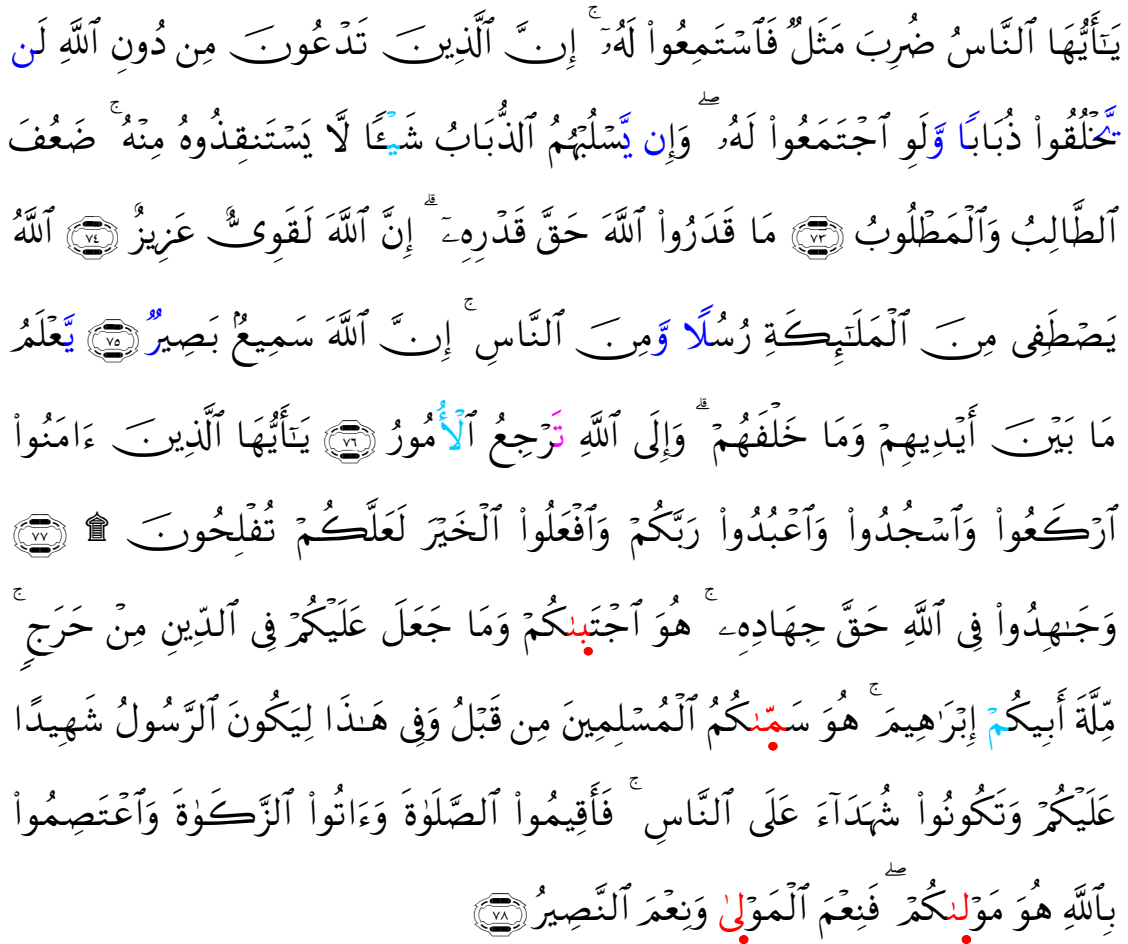 يَـٰٓأَيُّهَا ٱلنَّاسُ ضُرِبَ مَثَلٌ فَٱسْتَمِعُوا۟ لَهُۥٓ ۚ إِنَّ ٱلَّذِينَ تَدْعُونَ مِن دُونِ ٱللَّهِ لَن
يَّخْلُقُوا۟ ذُبَابًا وَّلَوِ ٱجْتَمَعُوا۟ لَهُۥ ۖ وَإِن يَّسْلُبْهُمُ ٱلذُّبَابُ شَيْـًٔا لَّا يَسْتَنقِذُوهُ مِنْهُ ۚ ضَعُفَ
ٱلطَّالِبُ وَٱلْمَطْلُوبُ ٧٣ مَا قَدَرُوا۟ ٱللَّهَ حَقَّ قَدْرِهِۦٓ ۗ إِنَّ ٱللَّهَ لَقَوِىٌّ عَزِيزٌ ٧٤ ٱللَّهُ
يَصْطَفِى مِنَ ٱلْمَلَـٰٓئِكَةِ رُسُلًا وَّمِنَ ٱلنَّاسِ ۚ إِنَّ ٱللَّهَ سَمِيعٌۢ بَصِيرٌ ٧٥ يَّعْلَمُ
مَا بَيْنَ أَيْدِيهِمْ وَمَا خَلْفَهُمْ ۗ وَإِلَى ٱللَّهِ تَرْجِعُ ٱلْأُمُورُ ٧٦ يَـٰٓأَيُّهَا ٱلَّذِينَ ءَامَنُوا۟
ٱرْكَعُوا۟ وَٱسْجُدُوا۟ وَٱعْبُدُوا۟ رَبَّكُمْ وَٱفْعَلُوا۟ ٱلْخَيْرَ لَعَلَّكُمْ تُفْلِحُونَ ۩ ٧٧
وَجَـٰهِدُوا۟ فِى ٱللَّهِ حَقَّ جِهَادِهِۦ ۚ هُوَ ٱجْتَبىٰكُمْ وَمَا جَعَلَ عَلَيْكُمْ فِى ٱلدِّينِ مِنْ حَرَجٍ ۚ
مِّلَّةَ أَبِيكُمْ إِبْرَٰهِيمَ ۚ هُوَ سَمّىٰكُمُ ٱلْمُسْلِمِينَ مِن قَبْلُ وَفِى هَـٰذَا لِيَكُونَ ٱلرَّسُولُ شَهِيدًا
عَلَيْكُمْ وَتَكُونُوا۟ شُهَدَآءَ عَلَى ٱلنَّاسِ ۚ فَأَقِيمُوا۟ ٱلصَّلَوٰةَ وَءَاتُوا۟ ٱلزَّكَوٰةَ وَٱعْتَصِمُوا۟
بِٱللَّهِ هُوَ مَوْلىٰكُمْ ۖ فَنِعْمَ ٱلْمَوْلىٰ وَنِعْمَ ٱلنَّصِيرُ ٧٨